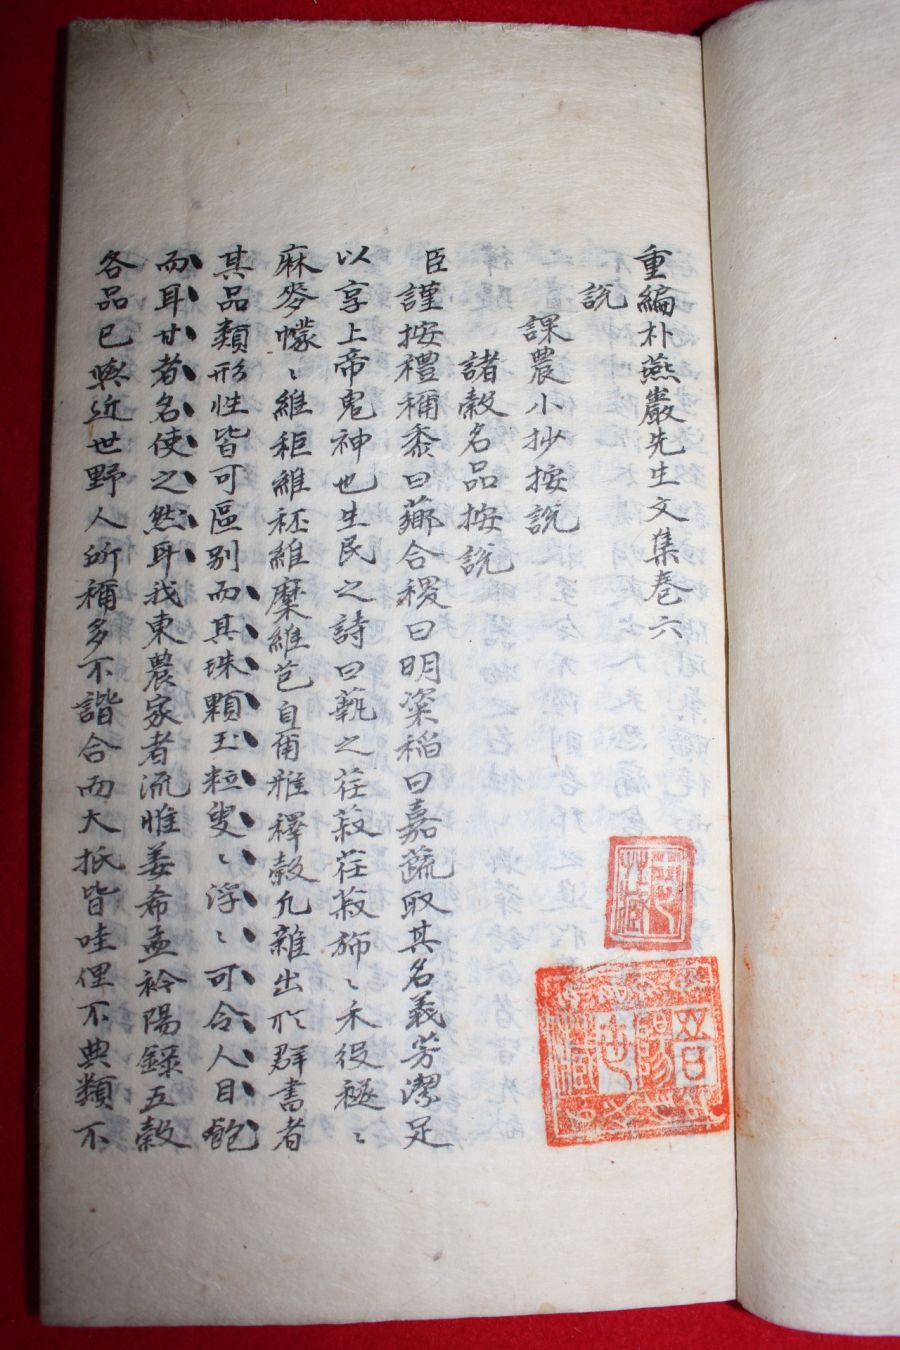 重編朴燕巖先生文集卷六
說
課農小抄按說
諸穀名品按說
臣謹按禮稱黍曰薌合稷曰明粢稻曰嘉蔬取其名義芳潔足
以享上帝鬼神也生民之詩曰蓺之荏菽荏菽斾〻禾役穟〻
麻麥幪〻維秬維秠維穈維芑自爾雅釋穀允雜出於群書者
其品類形性皆可區別而其珠顆玉粒叟〻浮〻可令人目飽
而耳甘者名使之然耳我東農家者流惟姜希孟衿陽錄五穀
各品已與近世野人所稱多不諧合而大抵皆哇俚不典類不